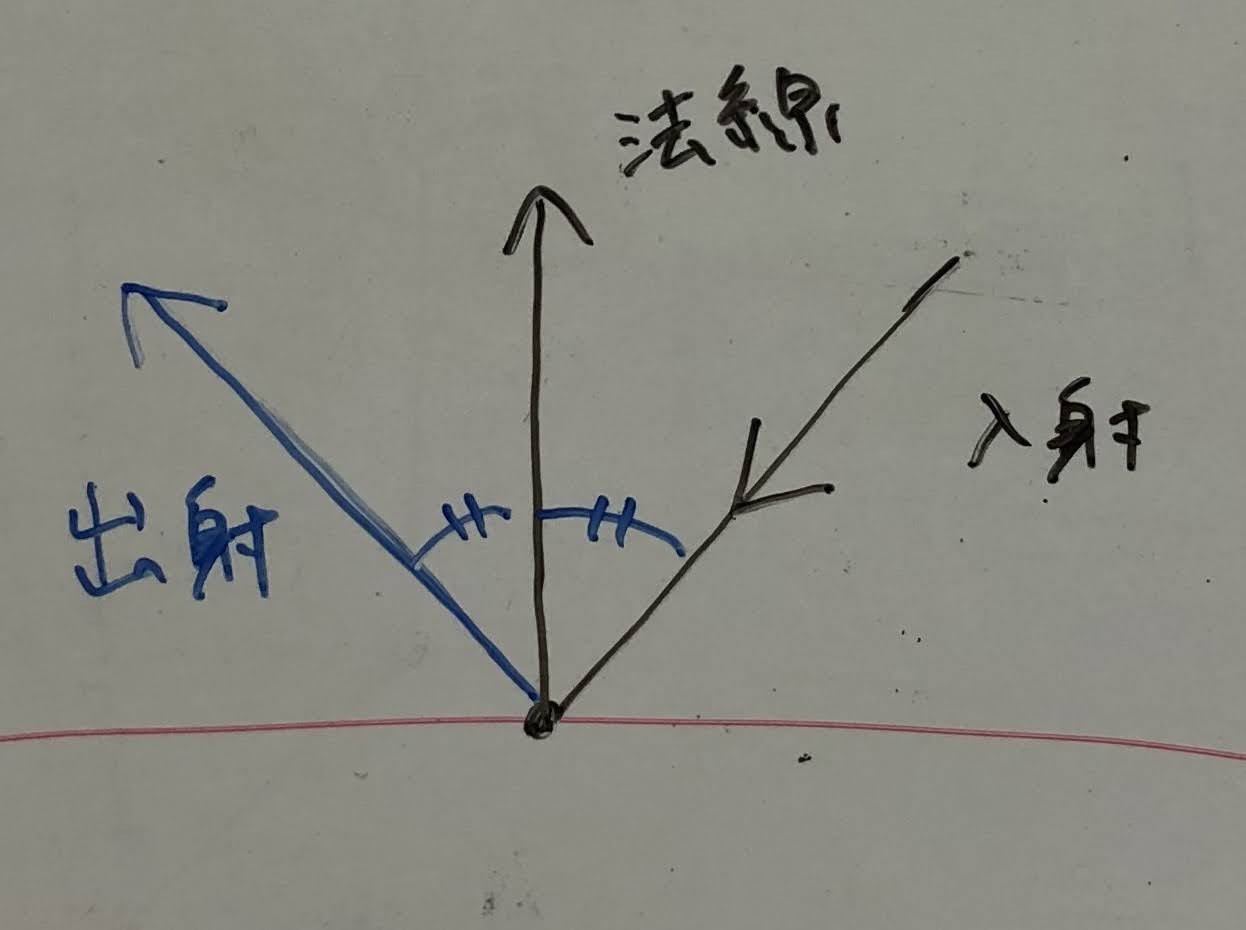 法線
入射
出射